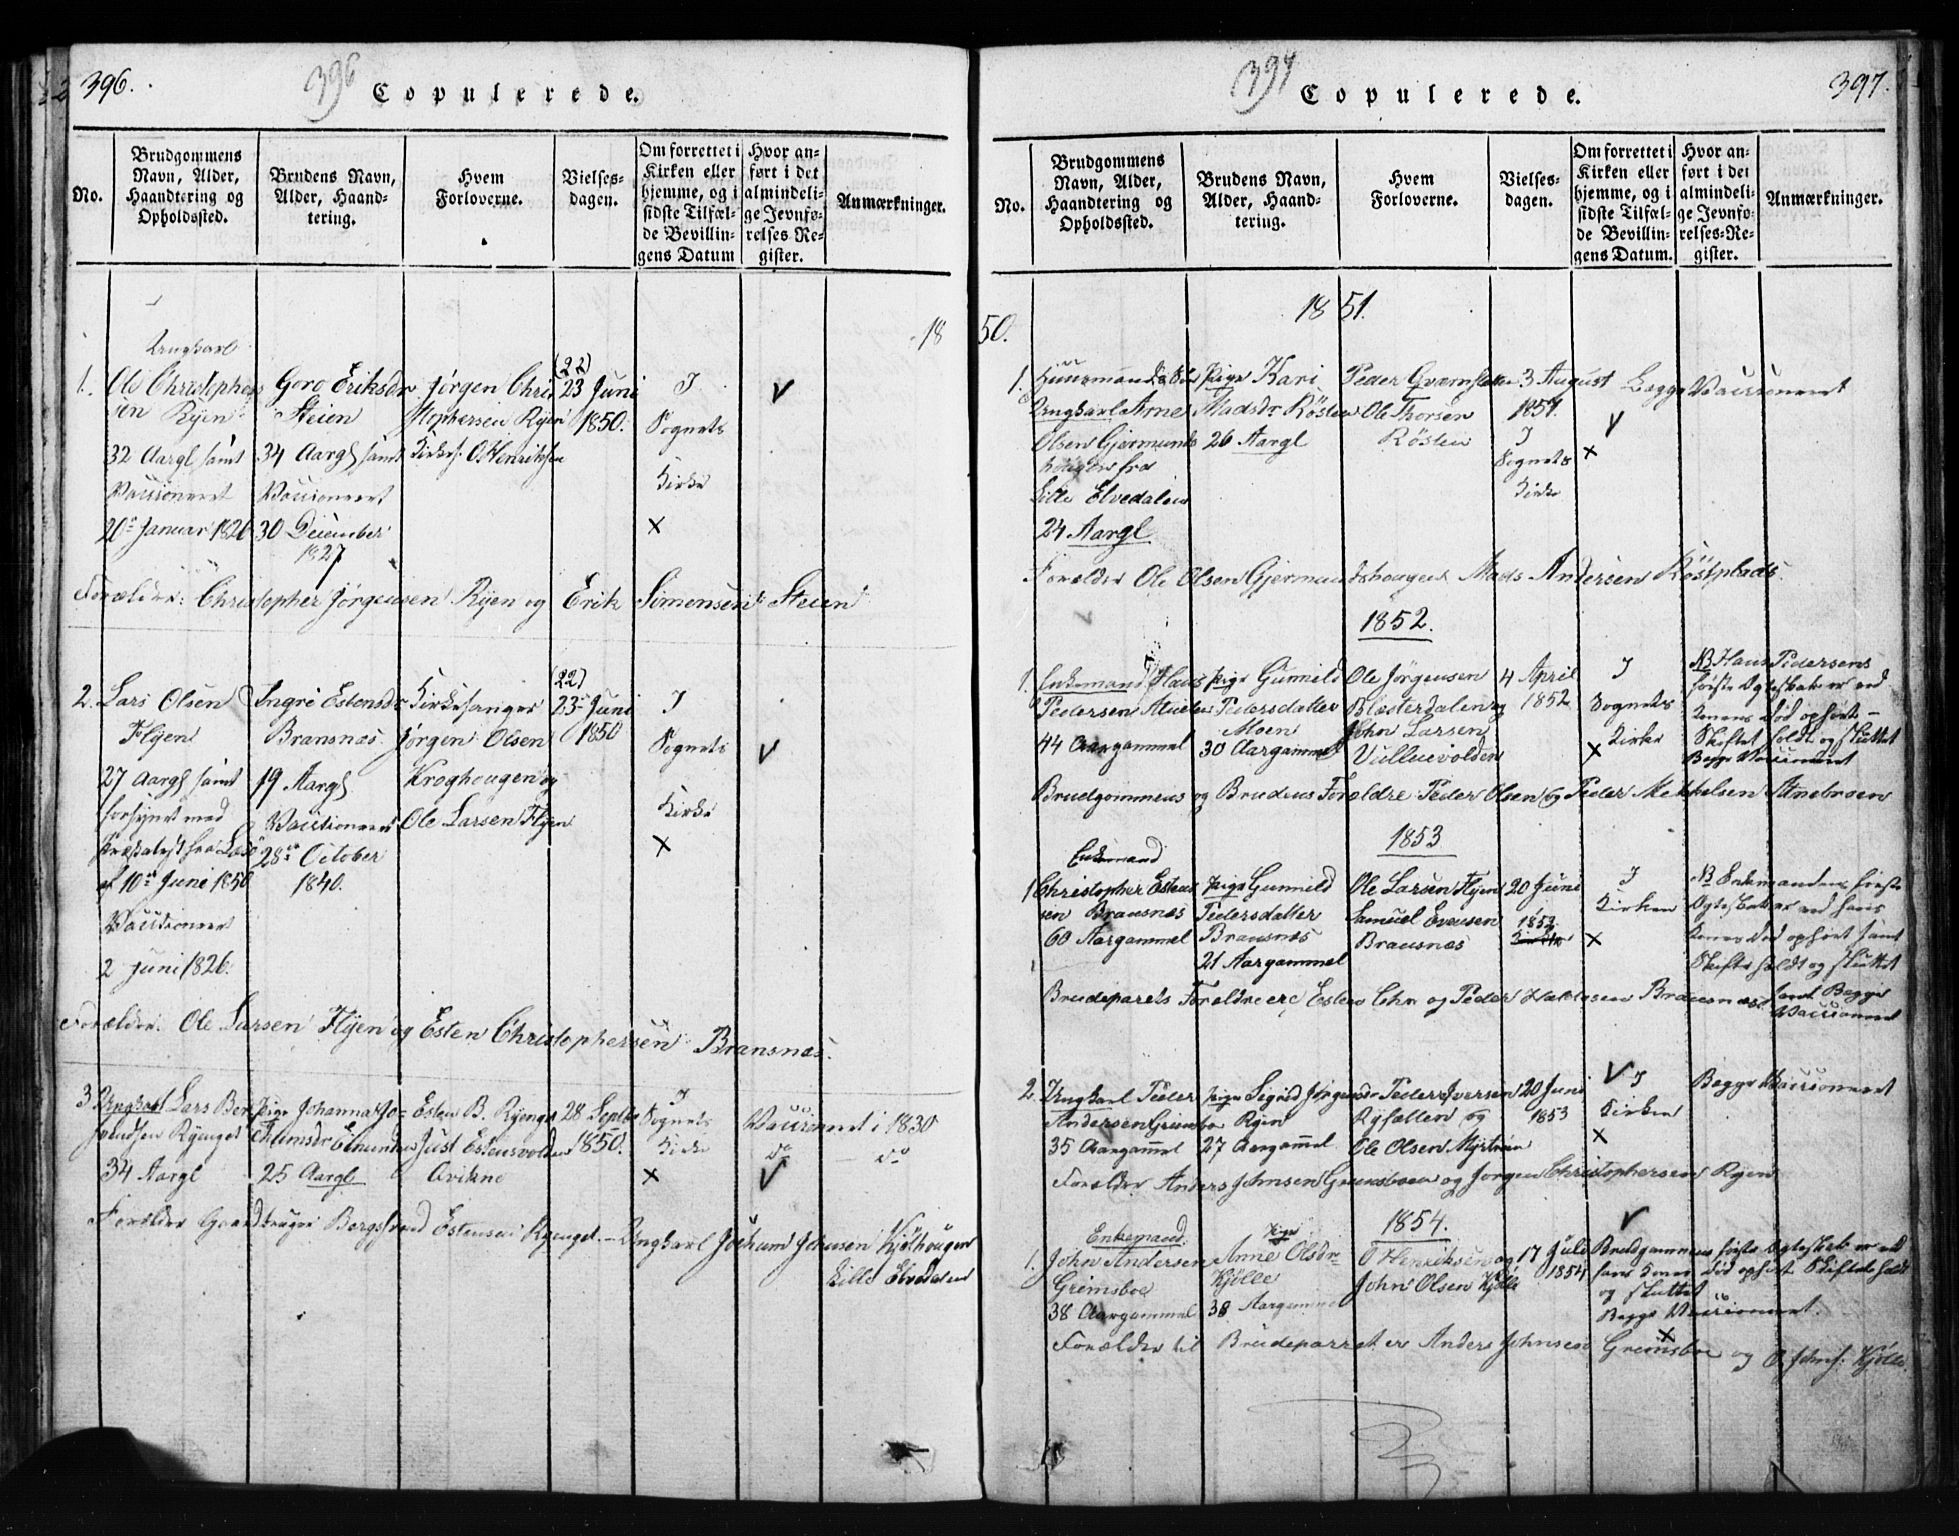 396.
396
Copulerede.
No.
Brudgommens
Navn, Alder,
Haandtering og
Opholdssted.
Brudens Navn,
Alder, Haand-
tering.
Hvem
Forloverne.
Vielses-
dagen.
Om forrettet i
Kirken eller
hjemme, og i
sidste Tilfæl-
de Bevillin-
gens Datum
Hvor an-
ført i det
almindeli-
ge Jevnfø-
relses-Re-
gister.
Anmærkninger.
1850.
Ungkarl
1. Ole Christophers
sen Ryen
32 Aargl samt
Vaccioneret
20de Januar 1826
Goro Eriksdr
Steien
34 Aargl samt
Vaccioneret
30 December
1827
Jørgen Chri
stophersen Ryen
Kirkes. O. Henriksen
(22)
23 Juni
1850.
I
Sognets
Kirke
x
Forælder: Christopher Jørgensen Ryen og Erik Simensen Steien
2. Lars Olsen
Flyen
27 Aargl samt
forsynet med
af 10de Juni 1850
Vaccioneret
2 Juni 1826.
Ingri Estensdr
Bransnæs.
19 Aargl
Vaccioneret
28de October
1840.
Kirkesanger
Jørgen Olsen
Kroghougen og
Ole Larsen Flyen
(22)
23de Juni
1850
I
Sognets
Kirke
x
Forælder: Ole Larsen Flyen og Esten Christophersen Bransnæs.
3 Ungkarl Lars Ber
34 Aargl
pige Johanna Jo-
25 Aargl
Esten B. Rÿenget
Just Estensvolden
Qvikne
28 Septbr
1850.
I
Sognets
Kirke
x
Vaccioneret i 1830
do do
Forælder Gaardbruger Estensen Ryenget - Ungkarl Jochum Johnsen Kjølhougen
Lille Elvedalen
394
Copulerede.
397.
No.
Brudgommens
Navn, Alder,
Haandtering og
Opholdssted.
Brudens Navn,
Alder, Haand-
tering.
Hvem
Forloverne.
Vielses-
dagen.
Om forrettet i
Kirken eller
hjemme, og i
sidste Tilfæl-
de Bevillin-
gens Datum.
Hvor an-
ført i det
almindeli-
ge Jevnfø-
relses-Re-
gister.
Anmærkninger.
1851.
1. Huusmands Søn
Ungkarl Arne
Olsen Gjermunds
hougen fra
Lille Elvedalen
24 Aargl
pige Kari
Madsdr Rösten
26 Aargl
Peder
Ole Thorsen
Rösten
3 August
1851.
I
Sognets
Kirke
x
Begge Vaccioneret
Forælder Ole Olsen Gjermundshougen Mads Andersen Röstplads.
1852.
1. Enkemand Hans
Pedersen
44 Aargammel
pige Gunild
Pedersdatter
Moen
30 Aargammel
Ole Jörgensen
Blæsterdalen og
John Larsen
4 April
1852
I
Sognets
Kirke
x
NB Hans Pedersens
første Ægteskab er ved
Konens Død ophört -
Skiftet holdt og sluttet
Begge Vaccioneret
Brudgommens og Brudens Forældre Peder Olsen og Peder
1853
Enkemand
1 Christopher Esten
sen Bransnæs
60 Aargammel
pige Gunnild
Pedersdatter
Bransnæs
21 Aargammel
Ole Larsen Flyen
Samuel Evensen
Bransnæs
20 Juni
1853
I
Kirken
x
NB Enkemandens første
Ægteskab er ved hans
Kones Død ophört samt
Skifte holdt og sluttet
samt Begge
Vaccioneret
Brudeparets Forældre ere Esten Chr og Peder Bransnæs
2. Ungkarl Peder
Andersen Grimsbo
35 Aargammel
pige Sigrid Jørgensdr
Ryen
27 Aargammel
Peder Iversen
Rÿfællen og
Ole Olsen
20 Juni
1853
I
Kirken
x
Begge Vaccioneret
Forælder Anders Johnsen Grimsboen og Jørgen Christophersen Ryen
1854.
Enkemand.
1. John Andersen
Grimsboe
38 Aargammel
pige
Anne Olsdr
Kjölle
38 Aargammel
O Henriksen og
John Olsen Kjölle
17 Juli
1854
Brudgommens første Ægteskab er ved
hans Kones Død ophørt Skiftet holdt
og sluttet
Begge Vaccioneret.
x
Forælder til Brudeparret er Anders Johnsen Grimsboe og O. Johns. Kjölle.